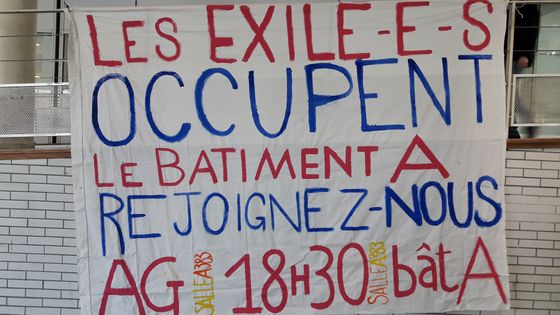 LES EXILE-E-S
OCCUPENT
LE BATIMENT A
REJOIGNEZ-NOUS
AG SALLE A383 18H30 SALLE A383 bât A